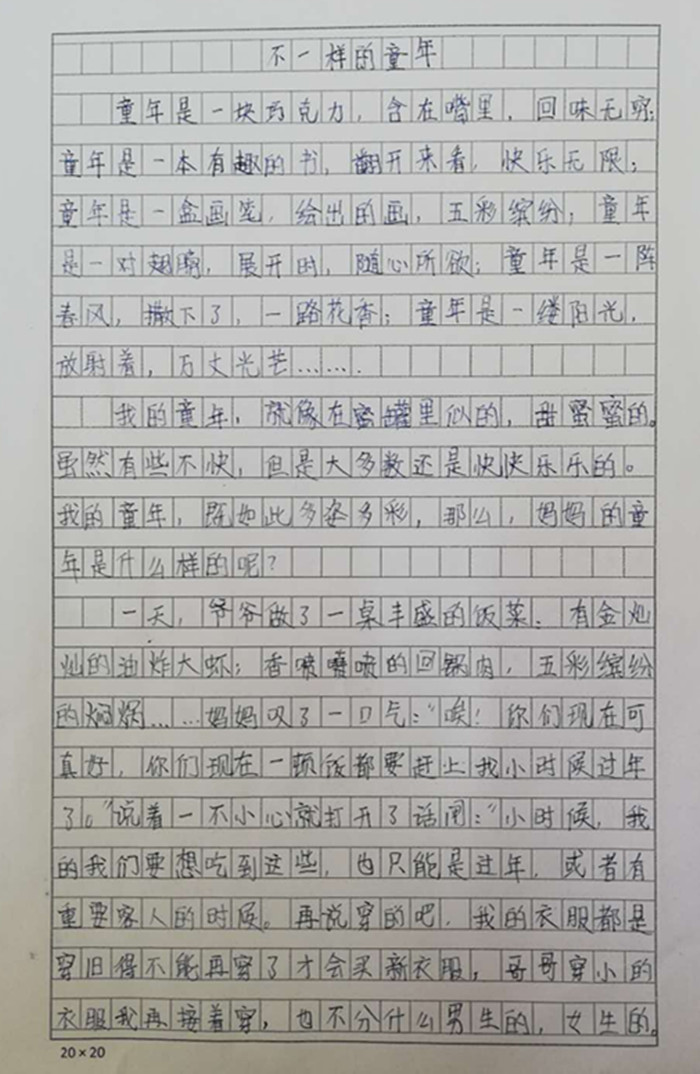 不一样的童年
童年是一块巧克力，含在嘴里，回味无穷；
童年是一本有趣的书，翻开来看，快乐无限；
童年是一盒画笔，绘出的画，五彩缤纷；童年
是一对翅膀，展开时，随心所欲；童年是一阵
春风，撒下了，一路花香；童年是一缕阳光，
放射着，万丈光芒……．
我的童年，就像在蜜罐里似的，甜蜜蜜的。
虽然有些不快，但是大多数还是快快乐乐的。
我的童年，既如此多姿多彩，那么，妈妈的童
年是什么样的呢？
一天，爷爷做了一桌丰盛的饭菜：有金灿
灿的油炸大虾；香喷喷喷的回锅肉，五彩缤纷
的焖锅……妈妈叹了一口气：“唉！你们现在可
真好，你们现在一顿饭都要赶上我小时候过年
了。”说着一不小心就打开了话闸：“小时候，我
的我们要想吃到这些，也只能是过年，或者有
重要客人的时候。再说穿的吧，我的衣服都是
穿旧得不能再穿了才会买新衣服，哥哥穿小的
衣服我再接着穿，也不分什么男生的，女生的。
20×20